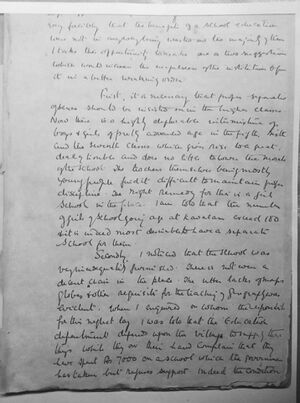 very possibly that the benefit of a school education
was not in any way being wanted on the majority then
I take the opportunity to make one or two suggestions
which would increase the usefulness of the institution & put
it in a better working order.
First, it is necessary that proper separate
spaces should be insisted on in the higher classes
Now there is a highly deplorable intermingling of
boys & girls of pretty advanced age in the fifth, sixth
and the seventh classes which gives rise to a great
deal of trouble and does no little to lower the morals
of the school. The teachers themselves being mostly
young people find it difficult to maintain proper
discipline. The right remedy for this is a girls
School in the place. I am told that the number
of girls of School going age at Karaitivu exceed 150
& it is indeed most desirable to have a separate
School for them.
Secondly, I noticed that the School was
very inadequately furnished. There is not even a
decent chair in the place. The utter lack of maps
globes & other requisites for the teaching of Geography was
evident. When I enquired on whom the responsibility
for this neglect lay, I was told that the Education
department depends upon the Village to supply these
things while they on their hand complain that they
have spent Rs 7000 on a school which the government
has taken but refuses support. Indeed the condition